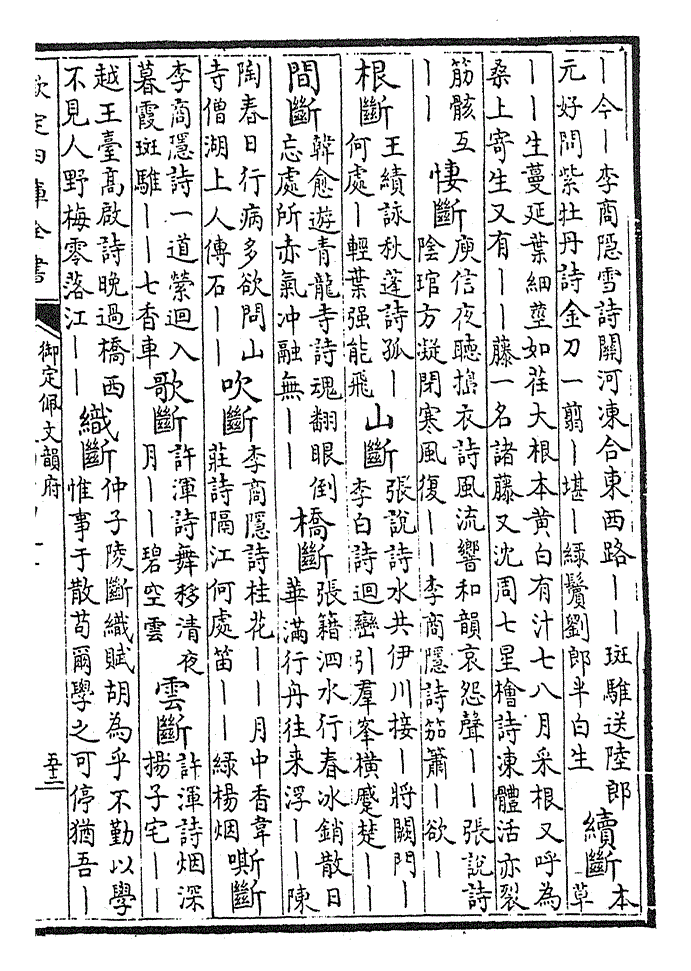 ｜今｜李商隠雪詩關河凍合東西路｜｜斑騅送陸郎
元好問紫牡丹詩金刀一翦｜堪｜綠鬢劉郎半白生
續斷
本
草
｜｜生蔓延葉細莖如荏大根本黄白有汁七八月采根又呼為
桑上寄生又有｜｜藤一名諸藤又沈周七星檜詩凍體活亦裂
筋骸互
｜｜
悽斷
庾信夜聽搗衣詩風流響和韻哀怨聲｜｜張說詩
陰琯方凝閉寒風復｜｜李商隠詩笳簫｜欲｜
根斷
王績詠秋蓬詩孤｜
何處｜輕葉强能飛
山斷
張說詩水共伊川接｜將闕門｜
李白詩迴巒引羣峯橫蹙楚｜｜
間斷
韓愈遊青龍寺詩魂翻眼倒
忘處所赤氣冲融無｜｜
橋斷
張籍泗水行春冰銷散日
華滿行舟往来浮｜｜陳
陶春日行病多欲問山
寺僧湖上人傳石｜｜
吹斷
李商隠詩桂花｜｜月中香韋
莊詩隔江何處笛｜｜綠楊烟
嘶斷
李商隠詩一道縈迴入
暮霞斑騅｜｜七香車
歌斷
許渾詩舞移清夜
月｜｜碧空雲
雲斷
許渾詩烟深
揚子宅｜｜
越王臺高啟詩晚過橋西
不見人野梅零落江｜｜
織斷
仲子陵斷織賦胡為乎不勤以學
惟事于散苟爾學之可停猶吾｜
欽定四庫全書
御定佩文韻府
五十二